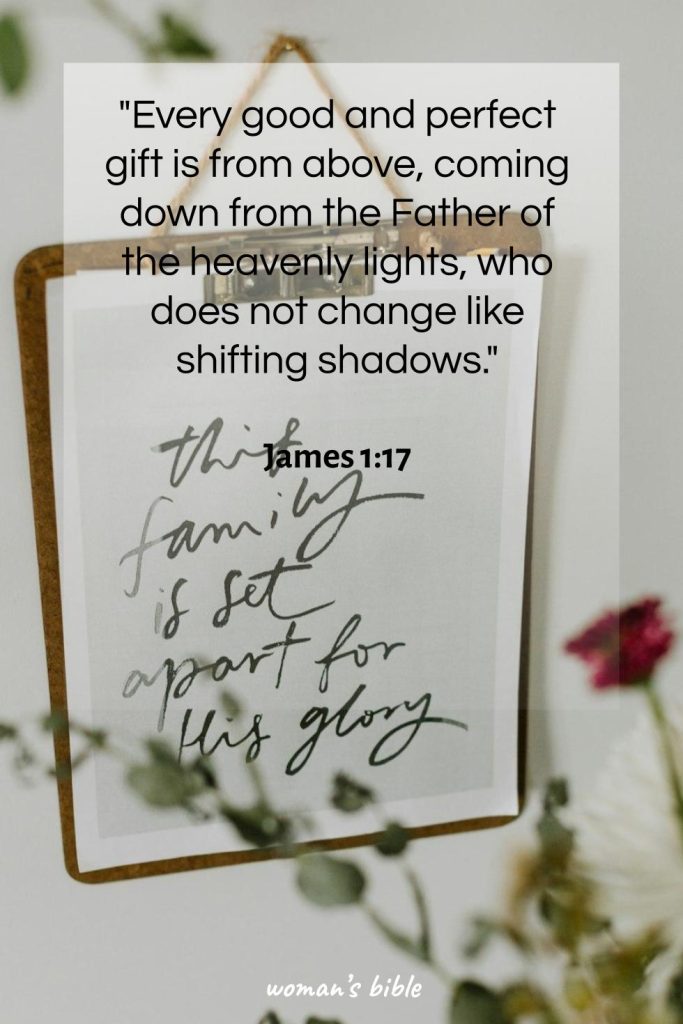 "Every good and perfect
gift is from above, coming
down from the Father of
the heavenly lights, who
does not change like
shifting shadows."
James 1:17
this
family
is set
apart for
His glory
woman's bible